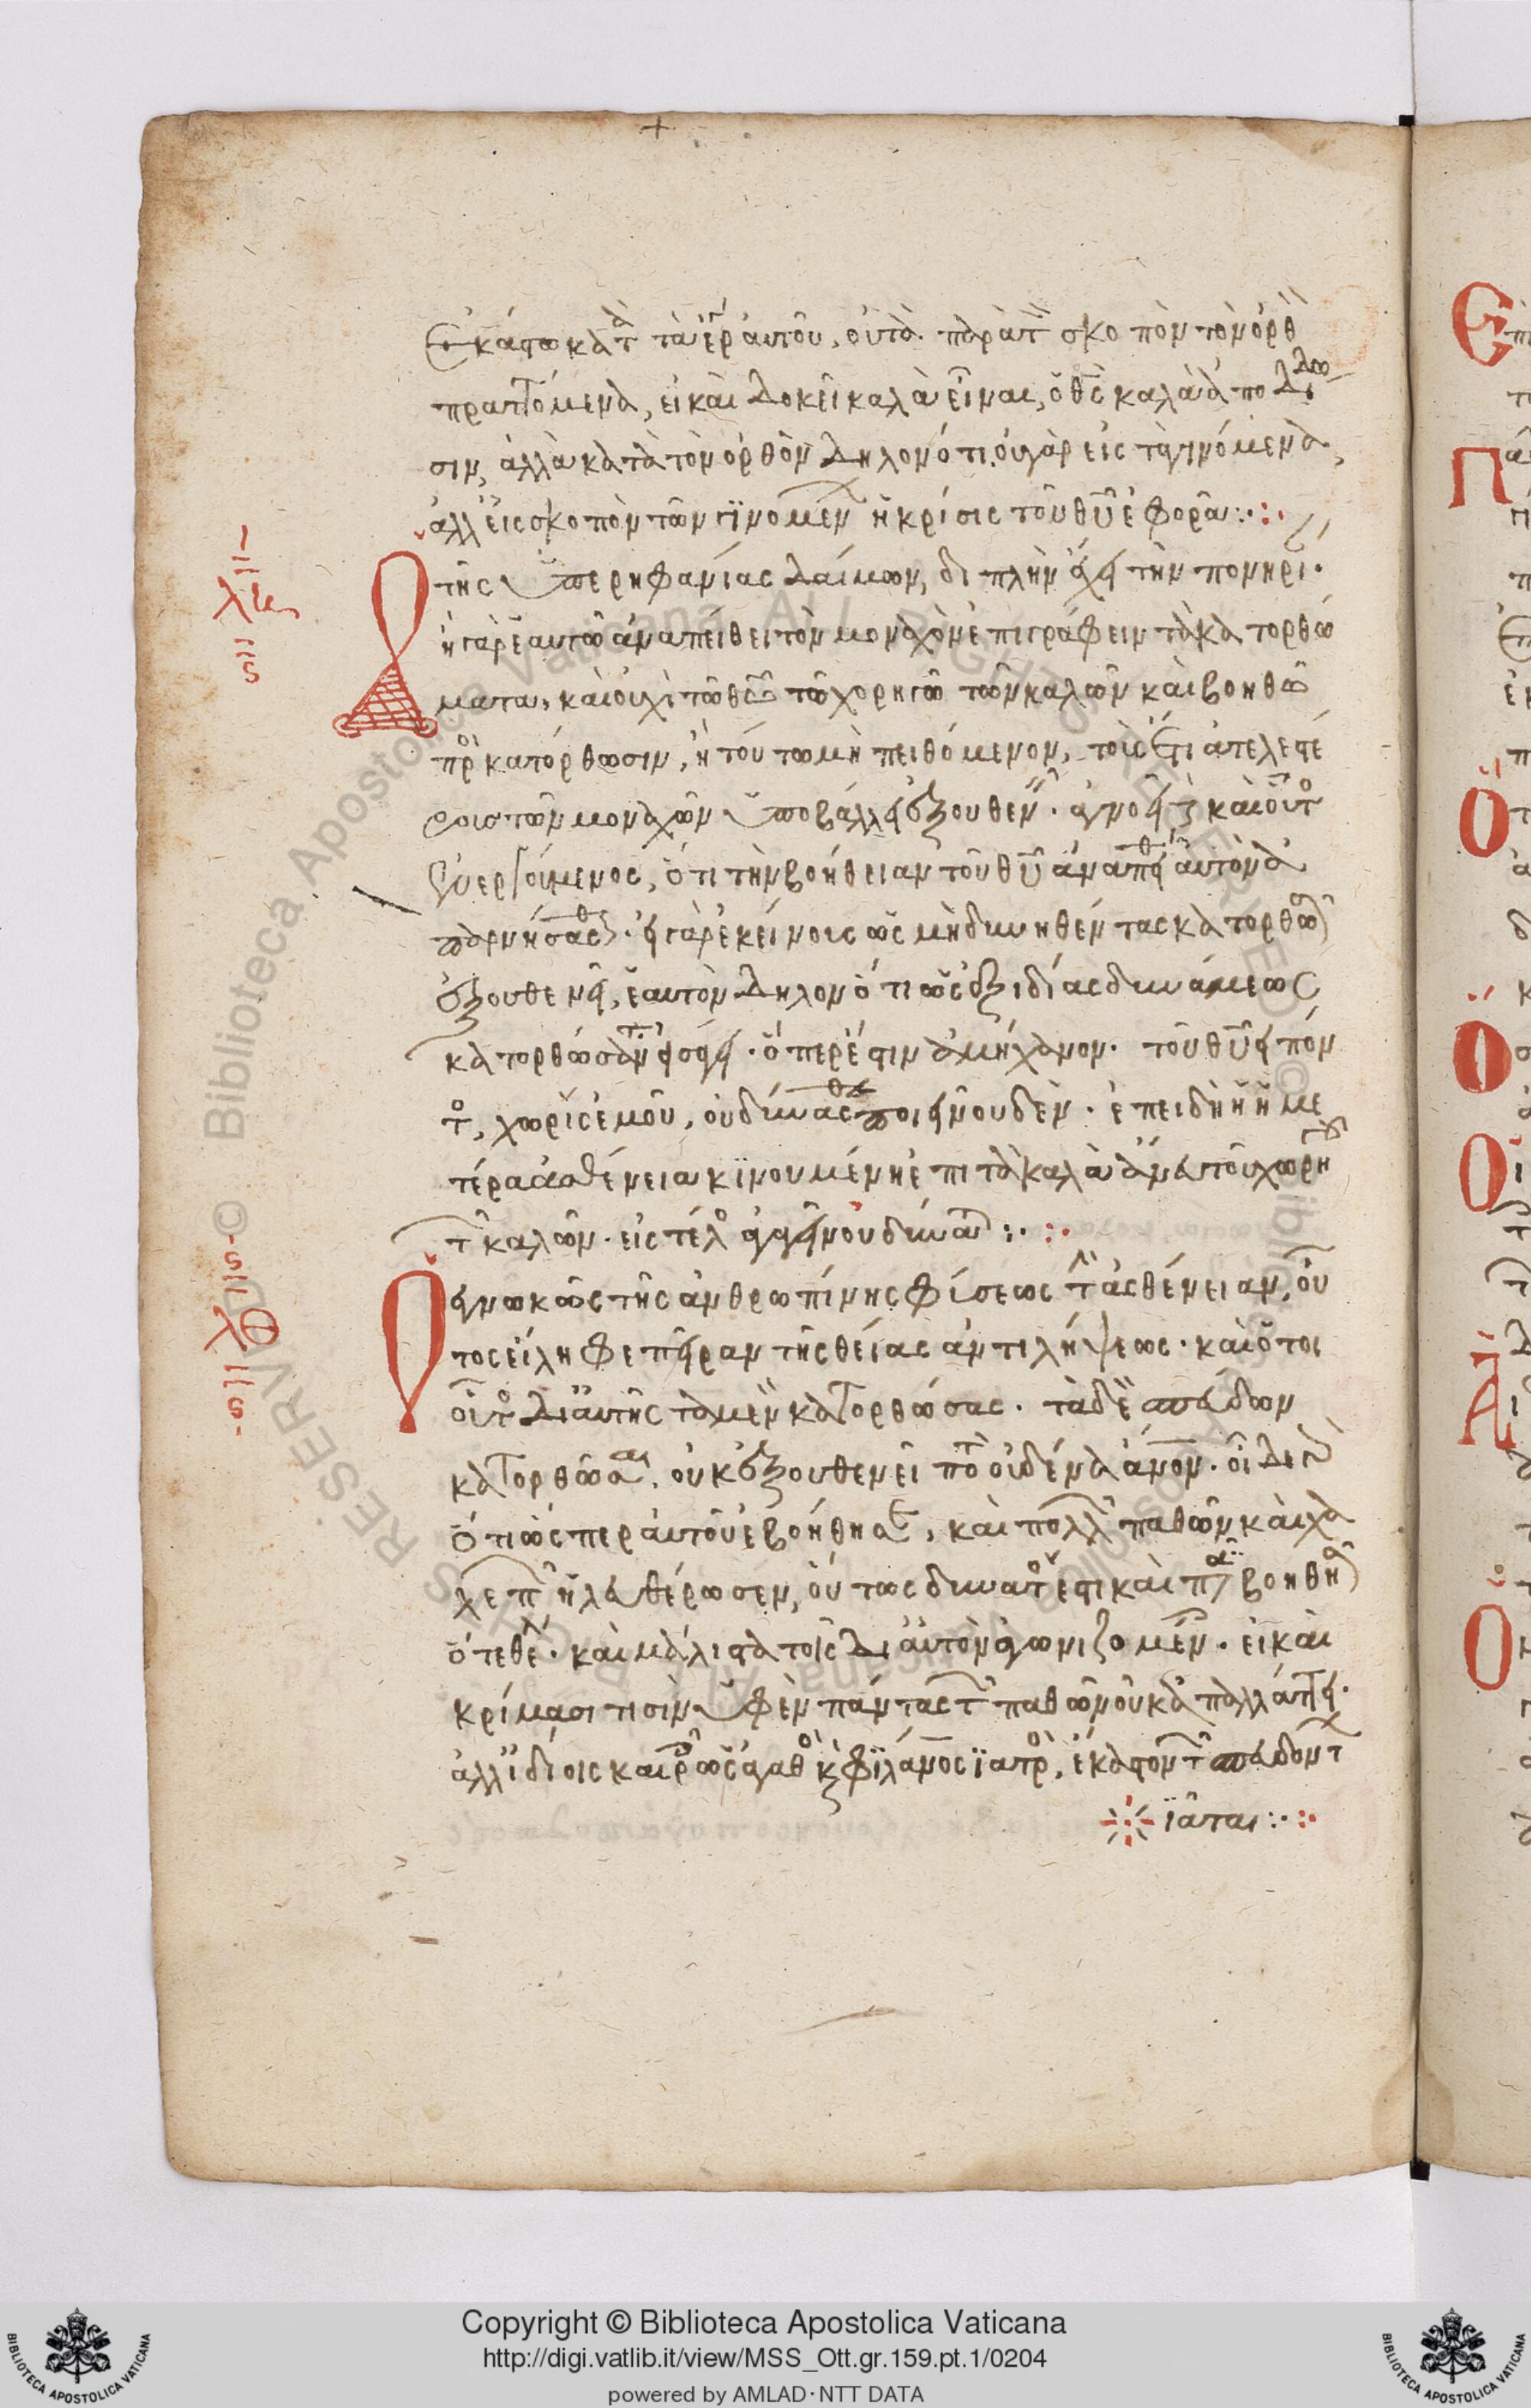 ἑκάστω κατὰ τὰ ἔργα αὐτοῦ. οὐ τὰ παρὰ τὸν σκοπὸν τὸν ὀρθὸν
πραττόμενα, εἰ καὶ δοκεῖ καλὰ εἶναι, ὁ θεὸς καλὰ ἀποδίδω
σιν, ἀλλὰ κατὰ τὸν ὀρθὸν δηλονότι. οὐ γὰρ εἰς τὰ γινόμενα,
ἀλλ' εἰς σκοπὸν τῶν γϊνομένων ἡ κρίσις τοῦ θῦ ἐφορᾶ :· :·
ὁ τῆς ὑπερηφανίας δαίμων, διπλὴν ἔχει τὴν πονηρί·
ἢ γὰρ ἑαυτῶ ἀναπείθει τὸν μοναχὸν ἐπιγράφειν τὰ κατορθώ
ματα, καὶ οὐχὶ τῶ θεῶ τῶ χορηγῶ τῶν καλῶν καὶ βοηθῶ
πρὸς κατόρθωσιν, ἢ τούτω μὴ πειθόμενον, τοὺς ἔτι ἀτελεστέ
ρους τῶν μοναχῶν ὑποβάλλει ἐξουθενεῖν· ἀγνοεῖ δὲ καὶ οὗτος
ἐνεργούμενος, ὅτι τὴν βοήθειαν τοῦ θῦ ἀναπείθει αὐτὸν ἀ
παρνήσασθαι· εἰ γὰρ ἐκείνους ὡς μὴ δυνηθέντας κατορθῶσαι
ἐξουθενεῖ, ἑαυτὸν δηλονότι ὡς ἐξ ἰδίας δυνάμεως
κατορθώσαντα εἰσάγει· ὅπερ ἐστὶν ἀμήχανον· τοῦ θῦ εἰπόν
τος, χωρὶς ἐμοῦ, οὐ δύνασθε ποιεῖν οὐδέν· ἐπειδὴ ἡ ἡμε
τέρα ἀσθένεια κϊνουμένη ἐπι τὰ καλὰ ἄνευ τοῦ χορηγοῦ
τῶν καλῶν· εἰς τέλος ἀγαγεῖν οὐ δύναται :· :·
Ὁ ἐγνωκὼς τῆς ἀνθρωπίνης φύσεως τὴν ἀσθένειαν, οὗ
τος εἴληφε πεῖραν τῆς θείας ἀντιλήψεως· καὶ ὁ τοι
οῦτος δι' αὐτῆς τὰ μὲν κατορθώσας. τὰ δὲ σπεύδων
κατορθῶσαι, οὐκ ἐξουθενεῖ ποτὲ οὐδένα ἀνον· οἶδε γὰρ
ὅτι ὥσπερ αὐτοῦ ἐβοήθησε, καὶ πολλῶν παθῶν καὶ χα
λεπῶν ἠλευθέρωσεν, οὕτως δυνατός ἐστι καὶ πᾶσι βοηθῆσαι
ὅτε θέλει· καὶ μάλιστα τοῖς δι' αὐτὸν ἀγωνιζομένοις· εἰ καὶ
κρίμασι τισὶν ὑφ' ἓν πάντας τῶν παθῶν οὐκ ἀπαλλάττει·
ἀλλ' ἰδίοις καιροῖς ὡς ἀγαθὸς καὶ φϊλανος ϊατρὸς, ἕκαστον τῶν σπευδόντων
ϊᾶται :· :·
Copyright © Biblioteca Apostolica Vaticana
http://digi.vatlib.it/view/MSS_Ott.gr.159.pt.1/0204
powered by AMLAD·NTT DATA